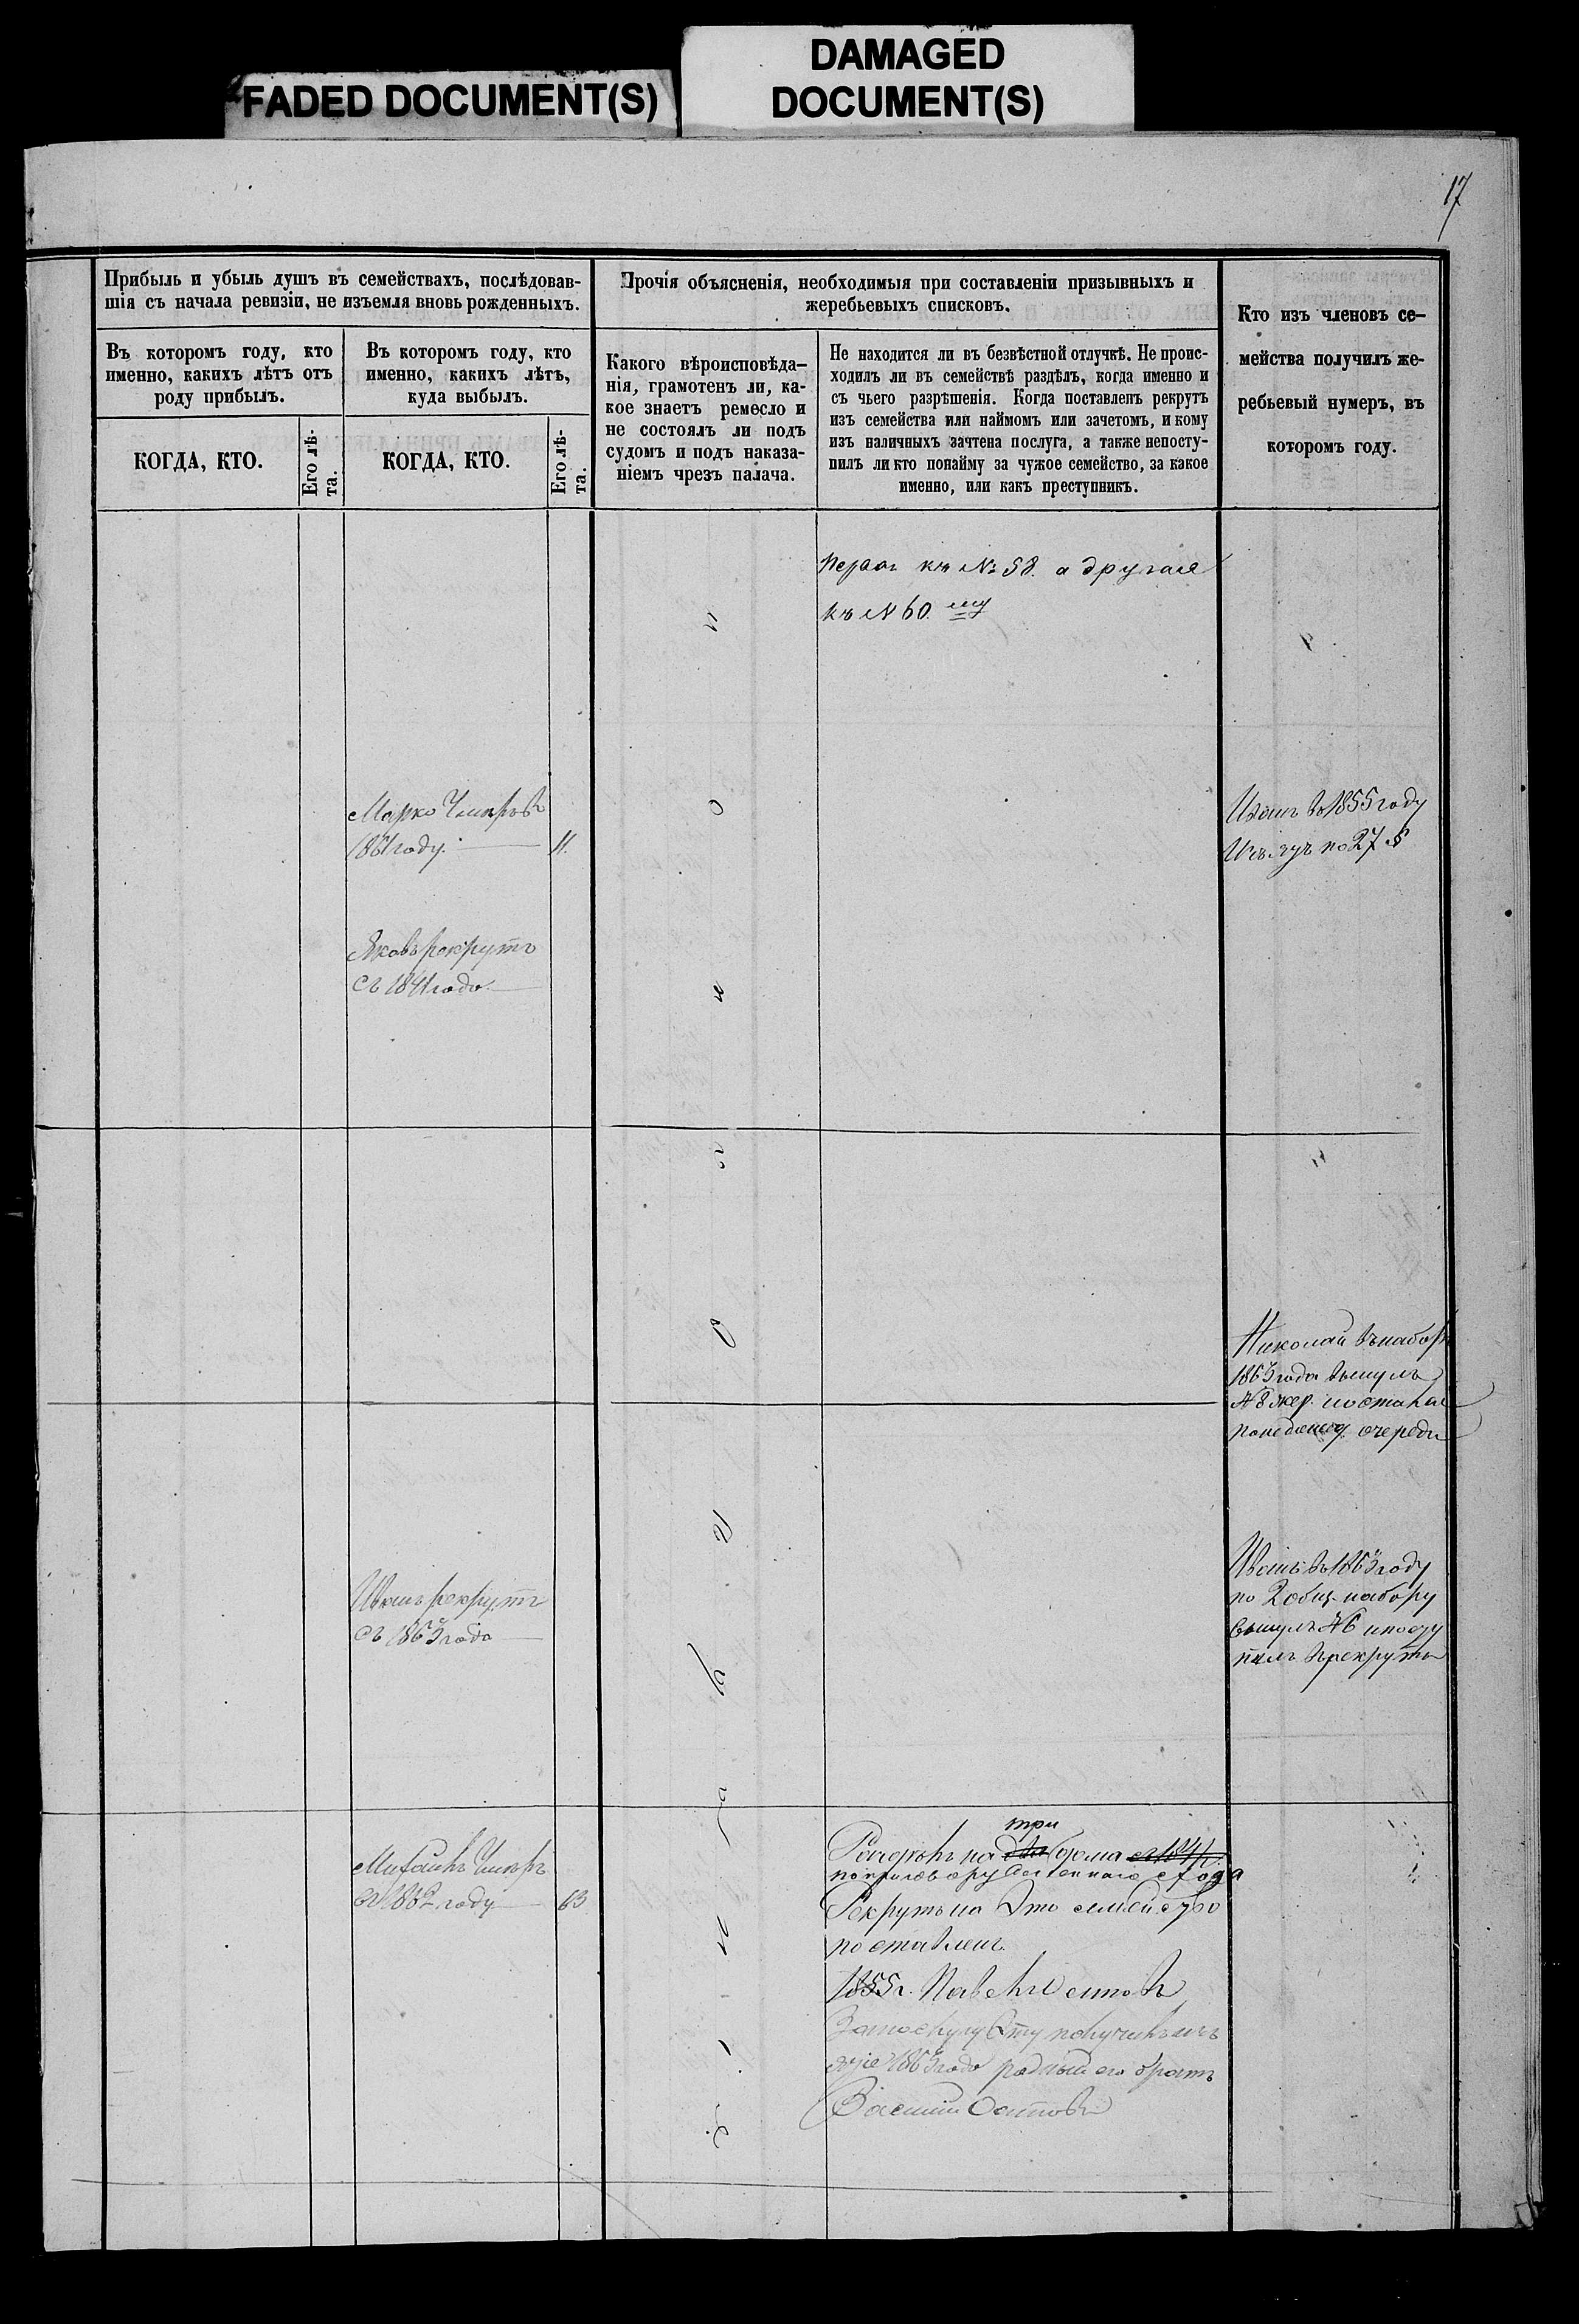 FADED DOCUMENT(S)
DAMAGED
DOCUMENT(S)
17
Прибыль и убыль душъ въ семействахъ, послѣдовав-
шія съ начала ревизіи, не изъемля вновь рожденныхъ.
Въ которомъ году, кто
именно, какихъ лѣтъ отъ
роду прибылъ.
КОГДА, КТО.
Его лѣ-
та.
Въ которомъ году, кто
именно, какихъ лѣтъ,
куда выбылъ.
КОГДА, КТО.
Его лѣ-
та.
Прочія объясненія, необходимыя при составленіи призывныхъ и
жеребьевыхъ списковъ.
Какого вѣроисповѣда-
нія, грамотенъ ли, ка-
кое знаетъ ремесло и
не состоялъ ли подъ
судомъ и подъ наказа-
ніемъ чрезъ палача.
Не находится ли въ безвѣстной отлучкѣ. Не проис-
ходилъ ли въ семействѣ раздѣлъ, когда именно и
съ чьего разрѣшенія. Когда поставленъ рекрутъ
изъ семейства или наймомъ или зачетомъ, и кому
изъ наличныхъ зачтена послуга, а также непосту-
пилъ ли кто понайму за чужое семейство, за какое
именно, или какъ преступникъ.
Кто изъ членовъ се-
мейства получилъ же-
ребьевый нумеръ, въ
которомъ году.
къ № 58. а другая
къ № 60 му
Марко
1861 году. 11.
Иванъ въ 1855 году
по 27 §
Яковъ рекрутъ
съ 1841 года
Николай въ наборъ
1863 года вынулъ
№ 8 жер.
очереди
Иванъ рекрутъ
съ 1863 года
Иванъ въ 1863 году
по 2 общ. набору
вынулъ № 6 и посту
пилъ въ рекруты
Михаилъ
1862 году 63
три
на два
по приговору
Рекрутъ на это семейство
поставленъ
1855 г. Павелъ
получилъ
1863 года родный его братъ
Василий